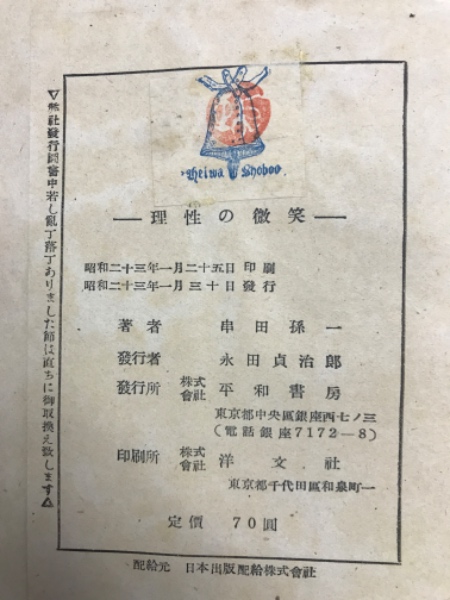 Heiwa Shoboo.
—理性の微笑—
昭和二十三年一月二十五日 印刷
昭和二十三年一月三十日 發行
著者 串田孫一
發行者 永田貞治郎
發行所 株式會社 平和書房
東京都中央區銀座西七ノ三
(電話銀座7172—8)
印刷所 株式會社 洋文社
東京都千代田區和泉町一
定價 70圓
配給元 日本出版配給株式會社
▽弊社發行圖書中若し亂丁落丁ありました節は直ちに御取換え致します△